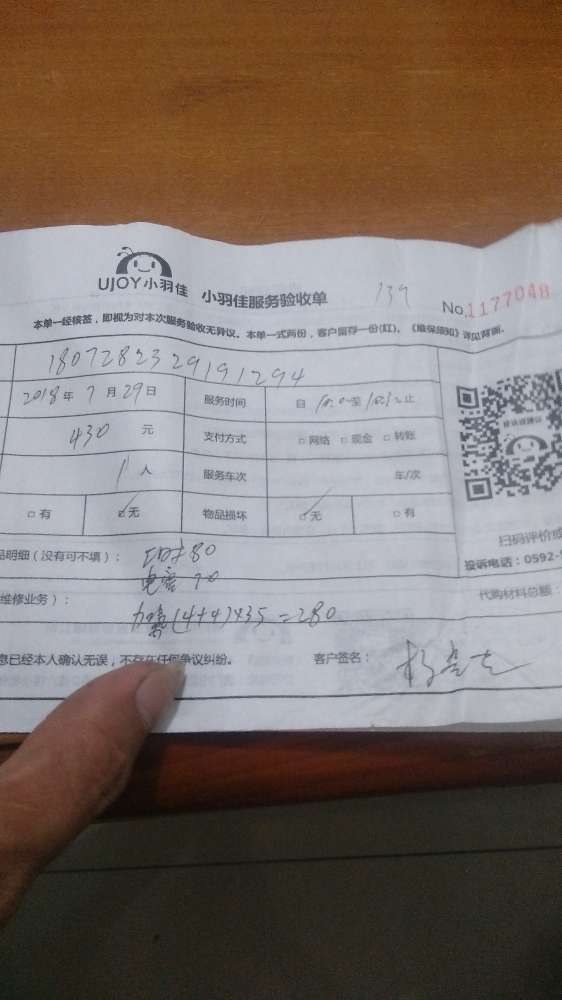 UJOY小羽佳 小羽佳服务验收单 139 No.1177048
本单一经核签，即视为对本次服务验收无异议。本单一式两份，客户留存一份(红)。《维保须知》详见背面。
1807282329191294
2018年7月29日 服务时间 自 至 止
430 元 支付方式 □网络 □现金 □转账
1人 服务车次 车/次
□有 ☑无 物品损坏 ☑无 □有
扫码评价或
品明细（没有可不填）： 80 投诉电话：0592-5
电容 70
维修业务）： 代购材料总额：
(4+4)×35=280
息已经本人确认无误，不存在任何争议纠纷。 客户签名：